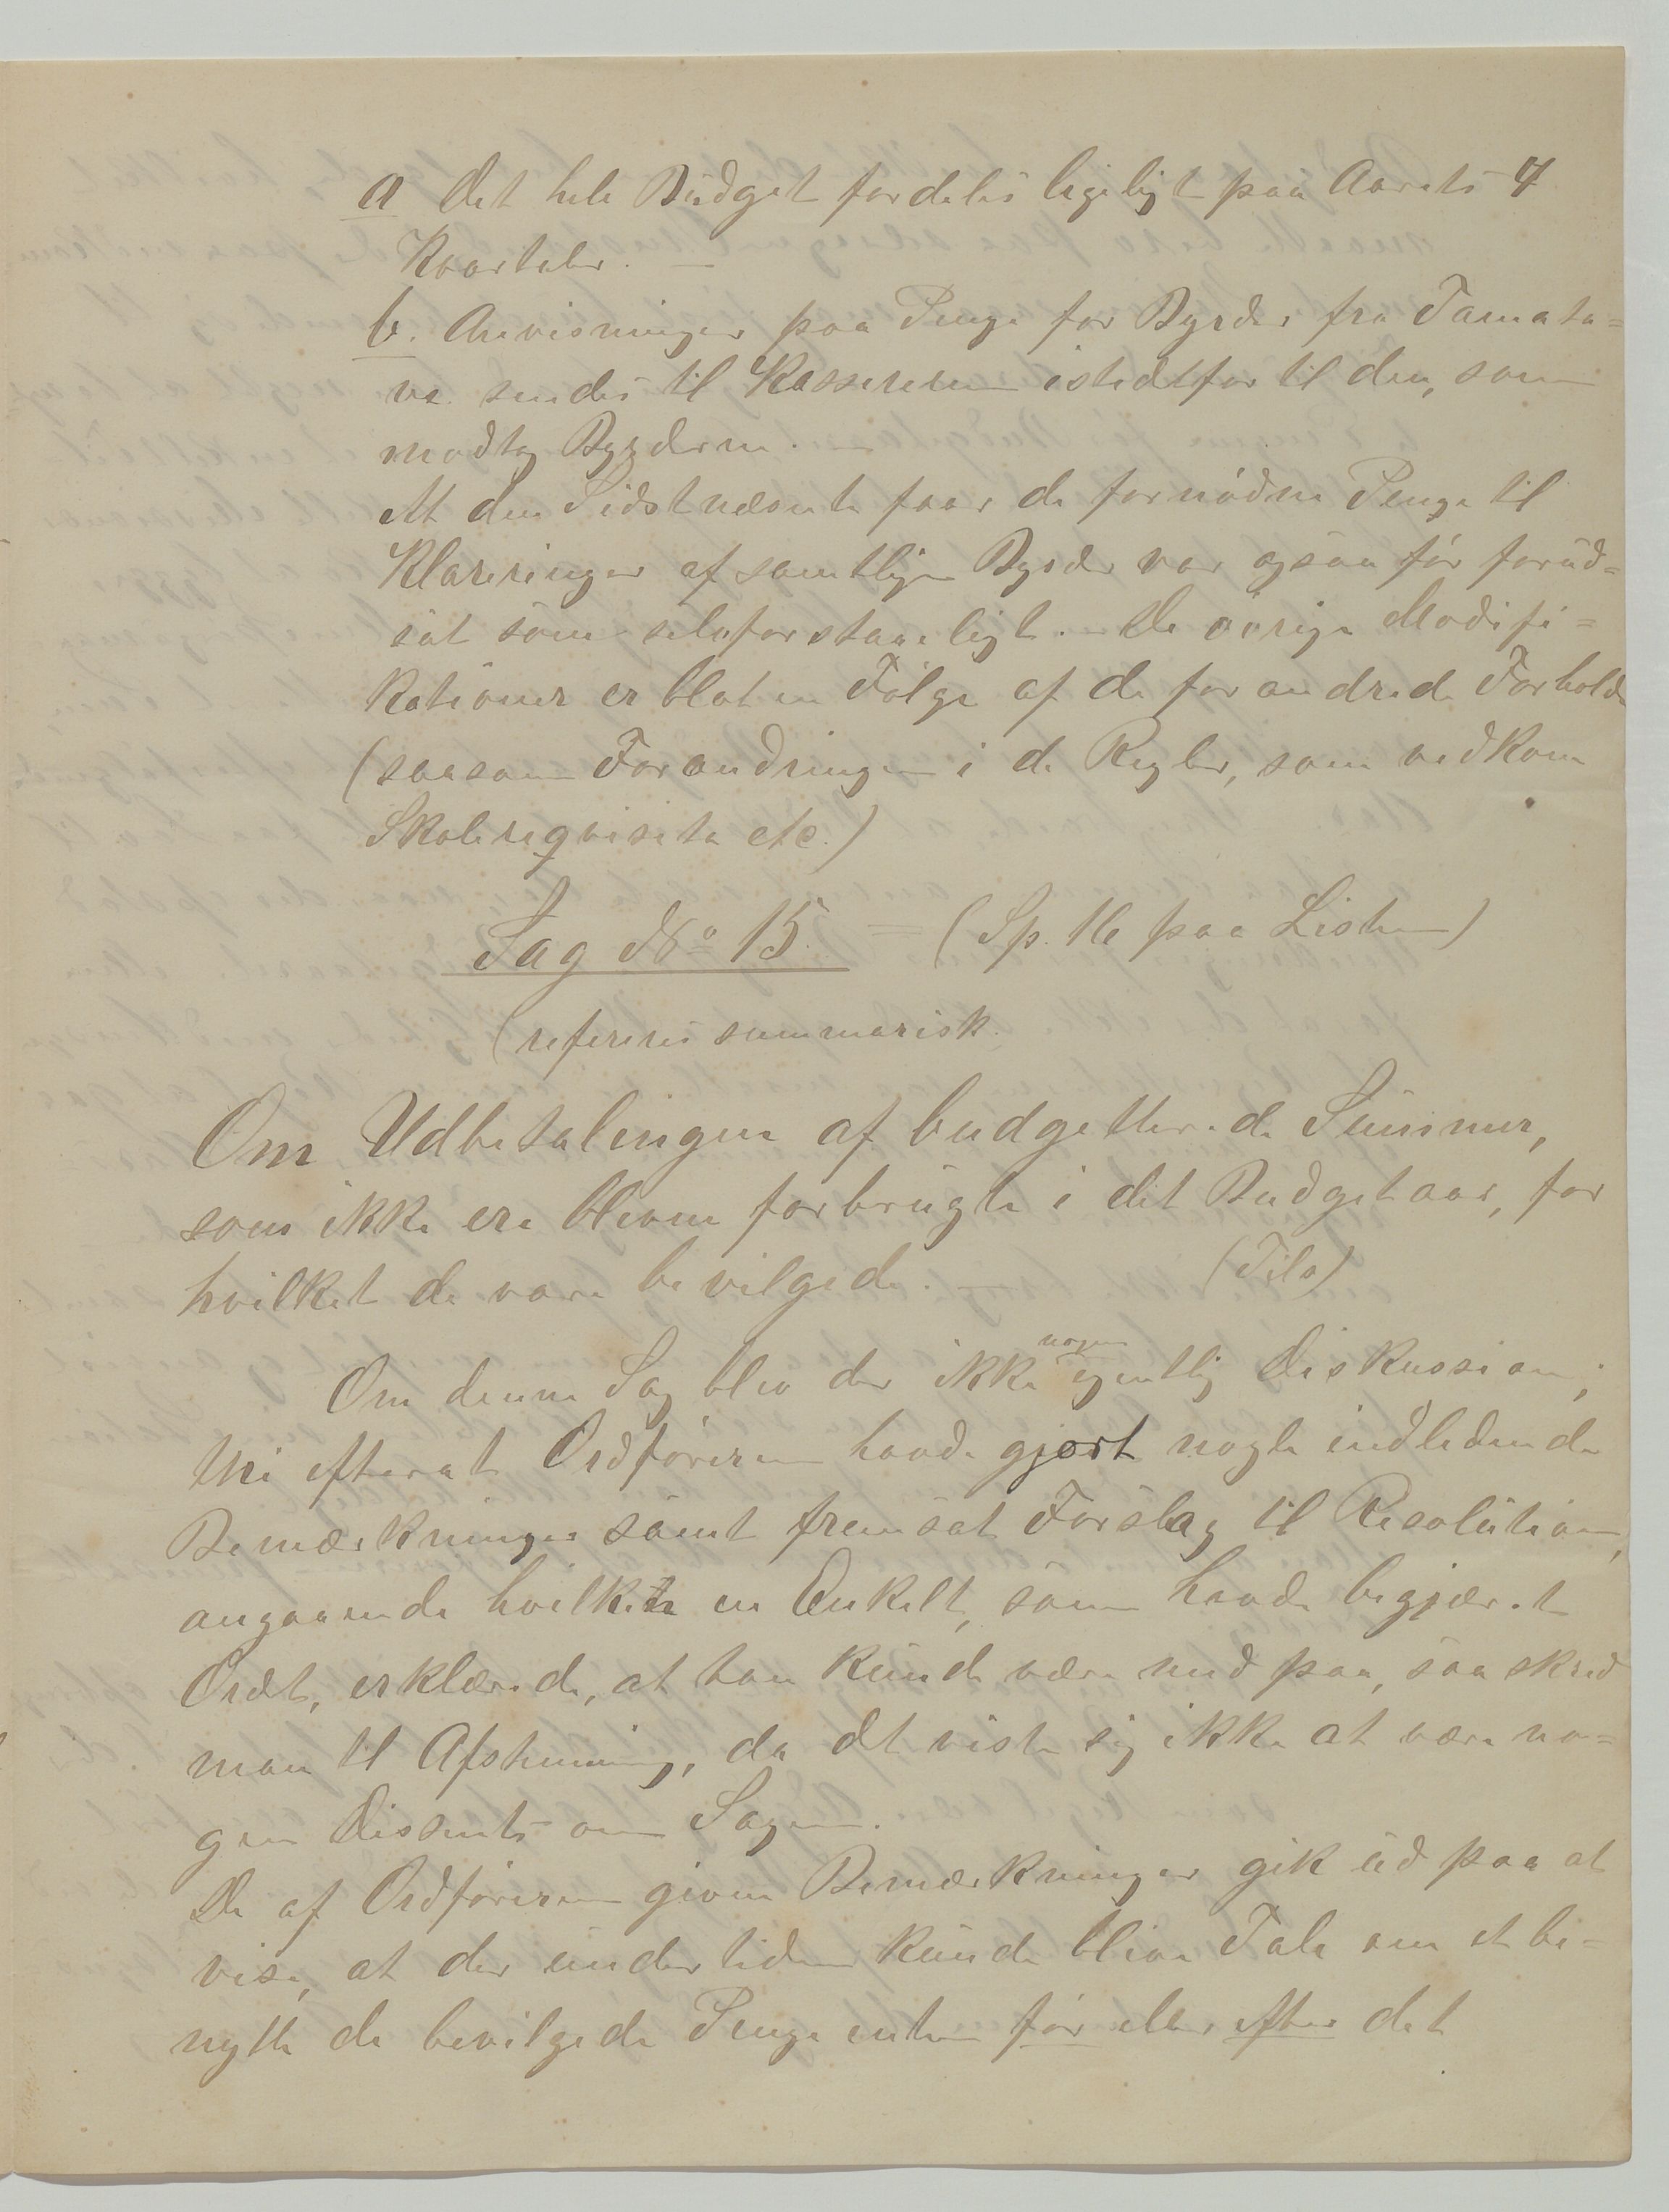 a Det hele Budget fordeles ligeligt paa Aarets 4
Kvartaler. —
b. Anvisninger paa Penge for Byrder fra Tamata=
ve sendes til Kassereren istedtfor til den, som
modtog Byrderne. —
At den Sidstnævnte faar de fornødne Penge til
Klareringer af samtlige Byrder var ogsaa før forud=
sat som selvforstaaeligt. – De øvrige Modifi=
kationer er blot en Følge af de forandrede Forholde
(saasom Forandringen i de Regler, som vedkom
Skolereqvisita etc.)
Sag No 15. = (Sp. 16 paa Listen)
(refereres summarisk.
Om Udbetalingen af budgetterede Summer,
som ikke ere blevne forbrugte i det Budgetaar, for
hvilket de vare bevilgede. — (Filo)
Om denne Sag blev der ikke nogen egentlig Diskussion;
thi efterat Ordføreren havde gjort nogle indledende
Bemærkninger samt fremsat Forslag til Resolution,
angaaende hvilket en Enkelt, som havde begjæret
Ordet, erklærede, at han kunde være med paa, saa skred
man til Afstemning, da det viste sig ikke at være no=
gen Dissents om Sagen.
De af Ordføreren givne Bemærkninger gik ud paa at
vise, at der undertiden kunde blive Tale om at be=
nytte de bevilgede Penge enten før eller efter det